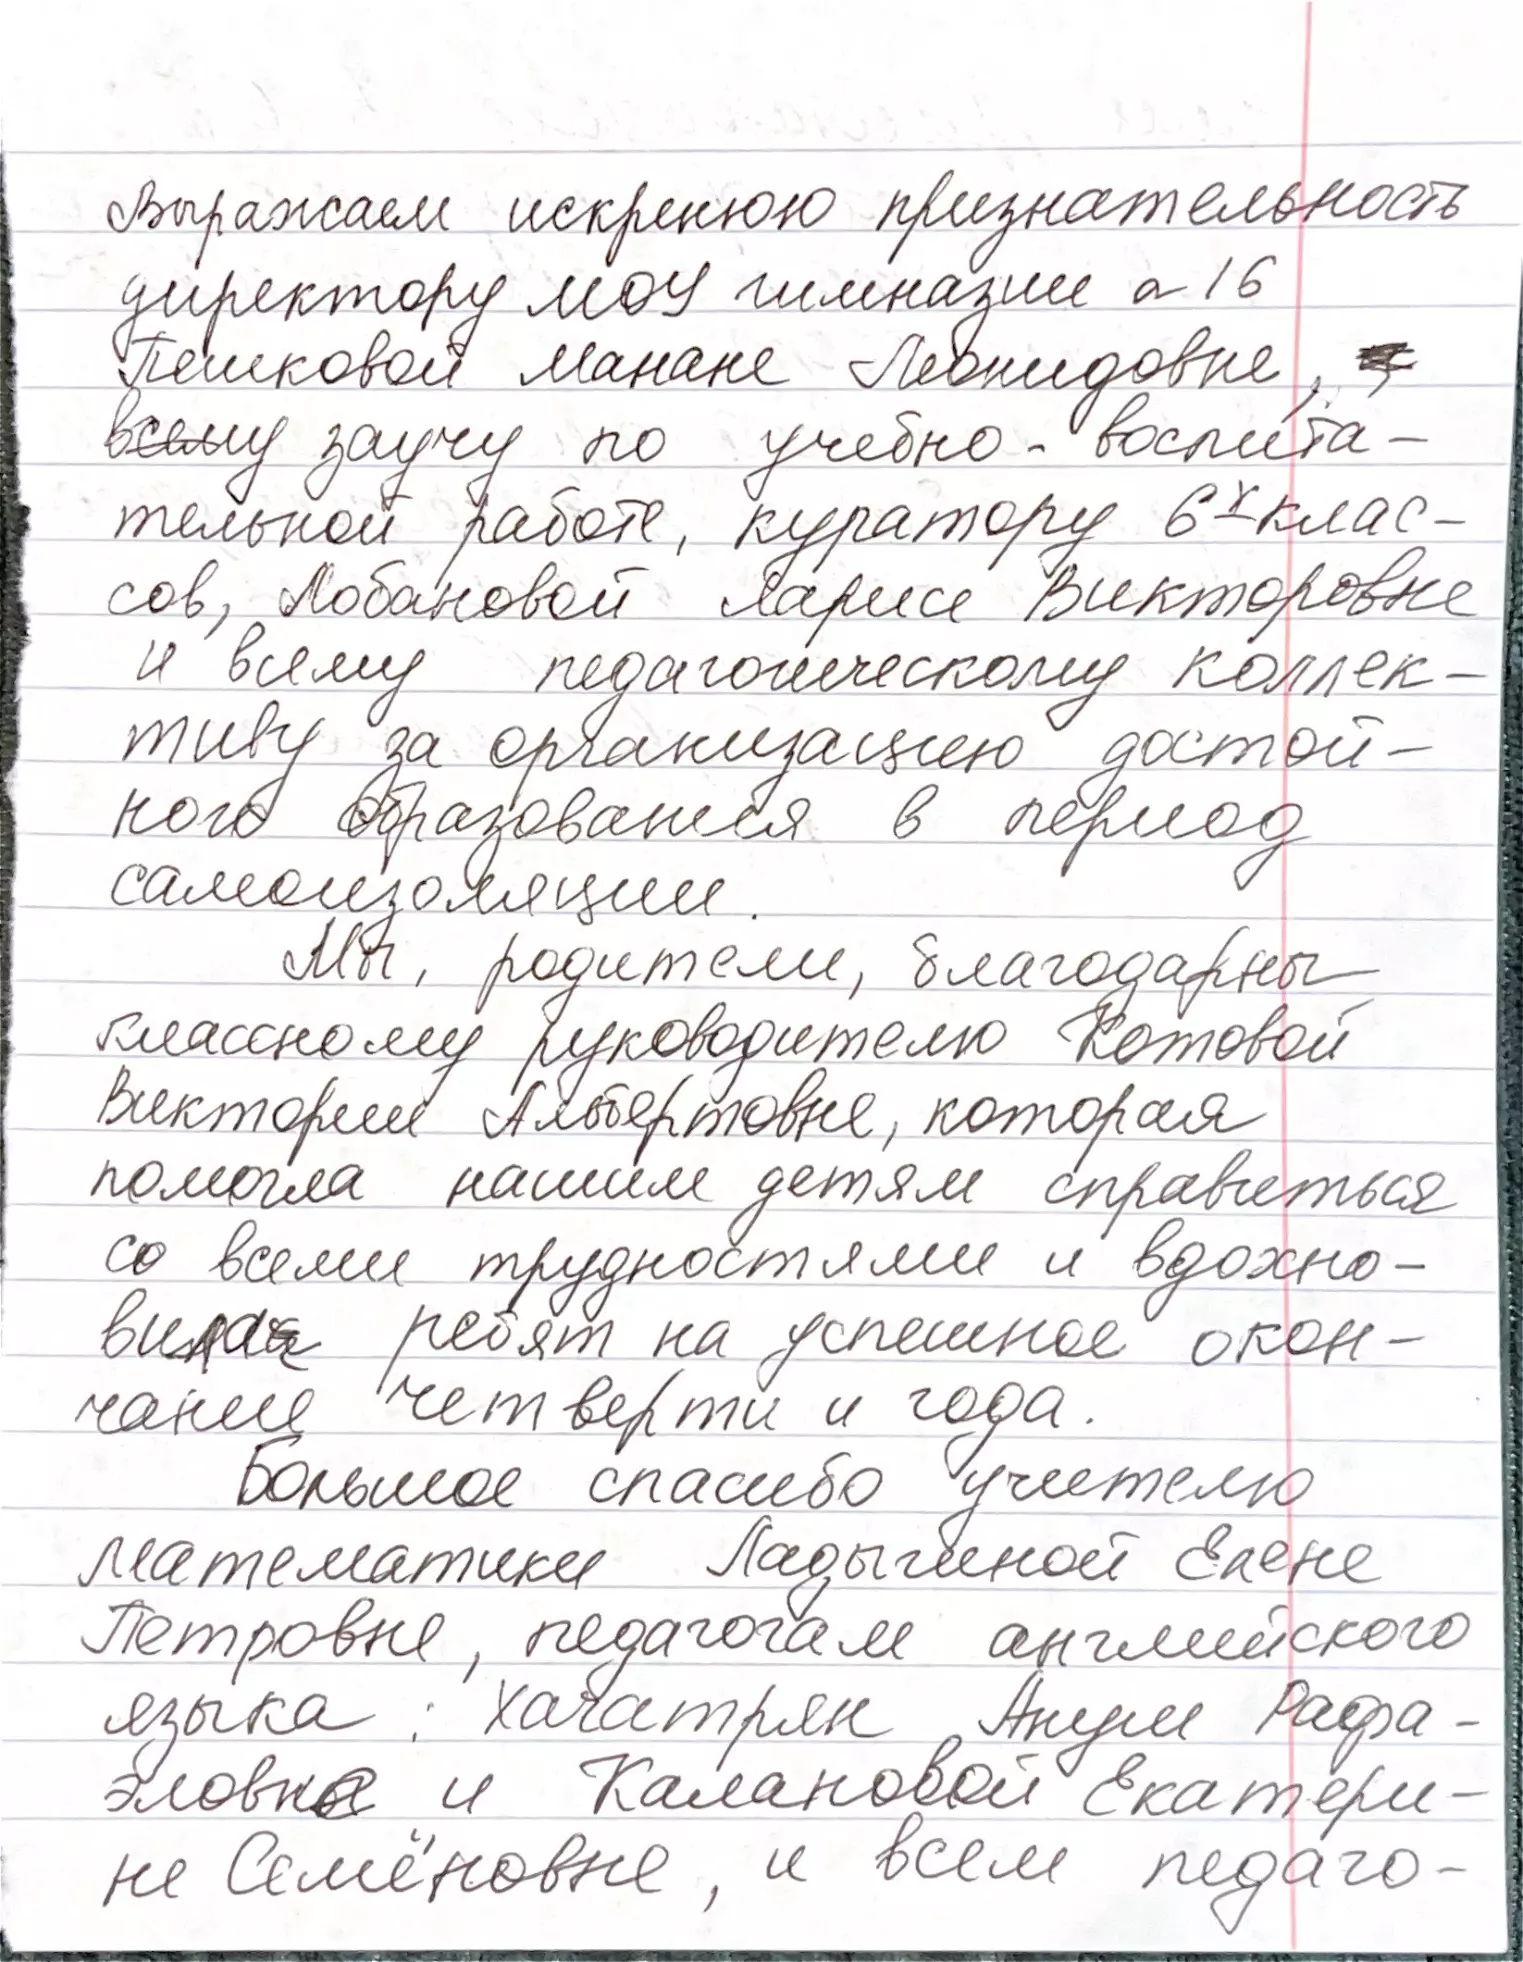 Выражаем искренюю признательность
директору МОУ гимназии №16
Пешковой Манане Леонидовне,
всему заучу по учебно-воспита-
тельной работе, куратору 6х клас-
сов, Лобановой Ларисе Викторовне
и всему педагогическому коллек-
тиву за организацию достой-
ного образования в период
самоизоляции.
Мы, родители, благодарны
классному руководителю Котовой
Виктории Альбертовне, которая
помогла нашим детям справиться
со всеми трудностями и вдохно-
вила ребят на успешное окон-
чание четверти и года.
Большое спасибо учителю
математики Ладыгиной Елене
Петровне, педагогам английского
языка: Хачатрян Ануш Рафа-
эловне и Калановой Екатери-
не Семёновне, и всем педаго-